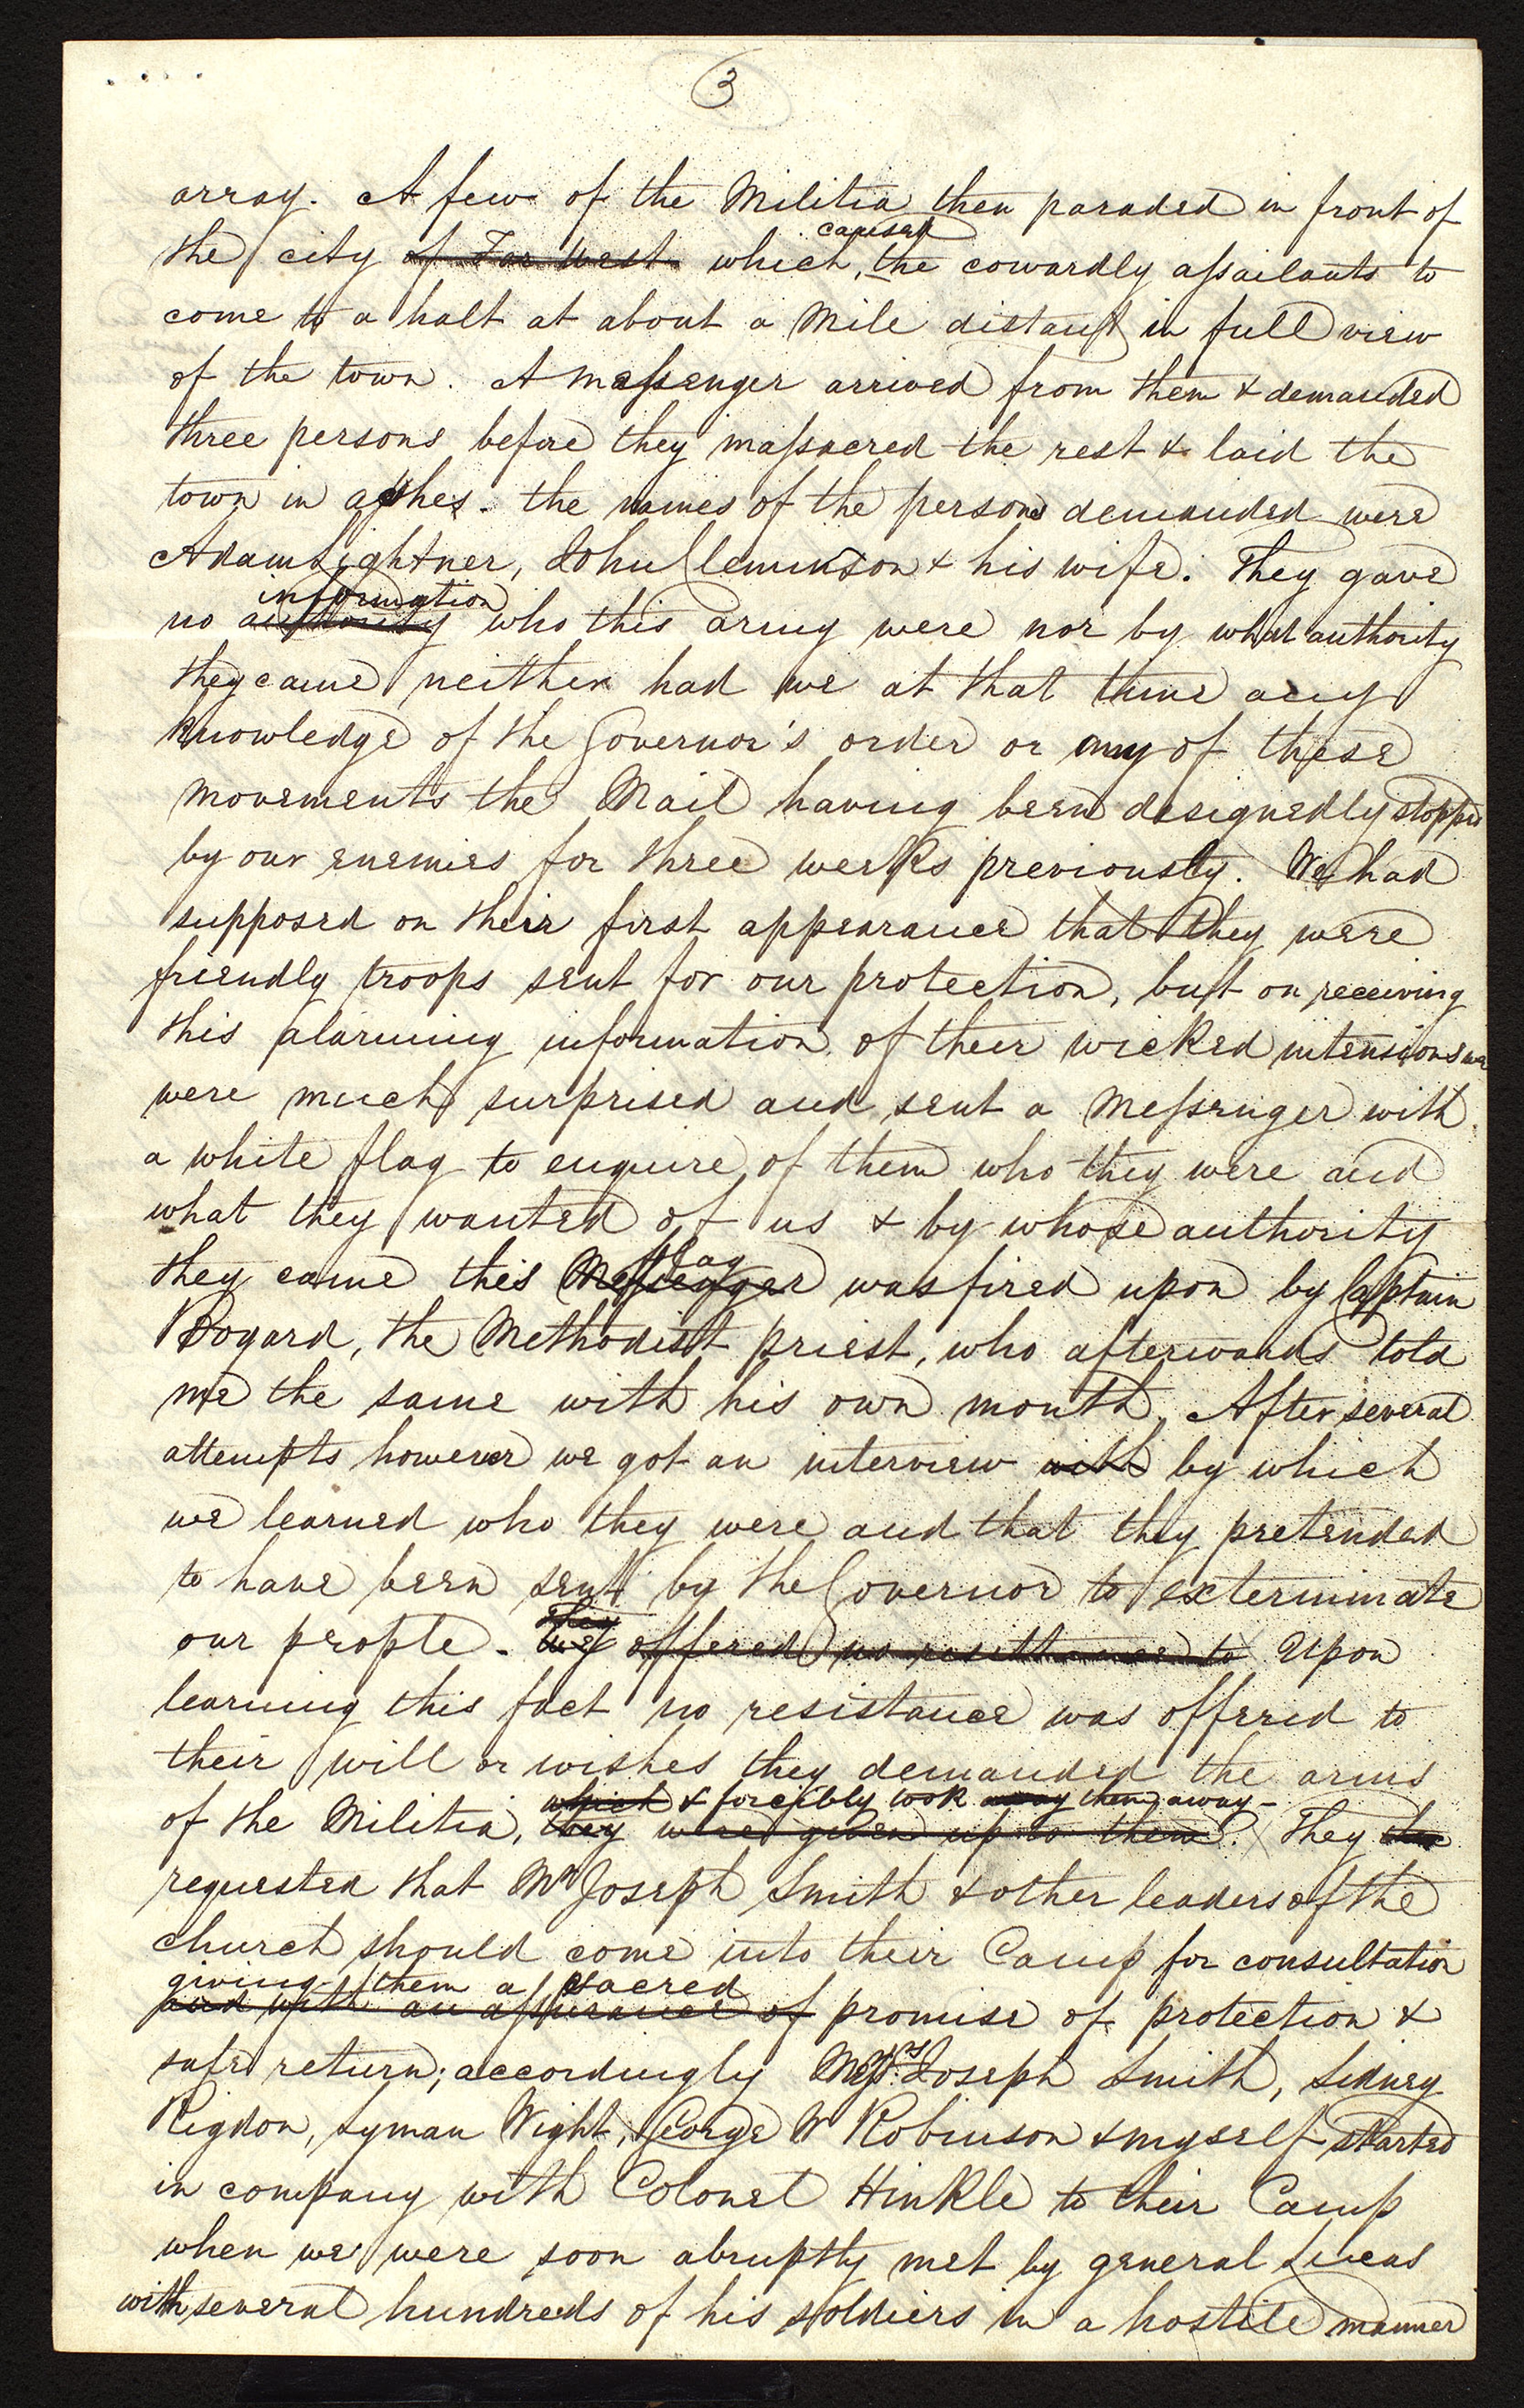 3
array. A few of the Militia then paraded in front of
caused
the city of Far West which, the cowardly assailants to
come to a halt at about a Mile distant in full view
of the town. A messenger arrived from them & demanded
three persons before they massacred the rest & laid the
town in ashes. the names of the persons demanded were
Adam Lightner, John Cleminson & his wife. They gave
information
no authority who this army were nor by what authority
they came neither had we at that time any
knowledge of the Governor's order or any of these
movements the Mail having been designedly stopped
by our enemies for three weeks previously. We had
supposed on their first appearance that they were
friendly troops sent for our protection, but on receiving
this alarming information of their wicked intensions we
were much surprised and sent a Messenger with
a white flag to enquire of them who they were and
what they wanted of us & by whose authority
flag
they came this Messenger was fired upon by Captain
Bogard, the Methodist priest, who afterwards told
me the same with his own mouth. After several
attempts however we got an interview with by which
we learned who they were and that they pretended
to have been sent by the Governor to exterminate
They
our people. We offered no resistance to Upon
learning this fact no resistance was offered to
their will or wishes they demanded the arms
which & forcibly took away them away-
of the Militia, they were given up to them. They
requested that Mr Joseph Smith & other leaders of the
church should come into their Camp for consultation
giving them a sacred
and with an assurance of promise of protection &
safe return; accordingly Messrs. Joseph Smith, Sidney
Rigdon, Lyman Wight, George W Robinson & myself started
in company with Colonel Hinkle to their Camp
when we were soon abruptly met by general Lucas
with several hundreds of his soldiers in a hostile manner